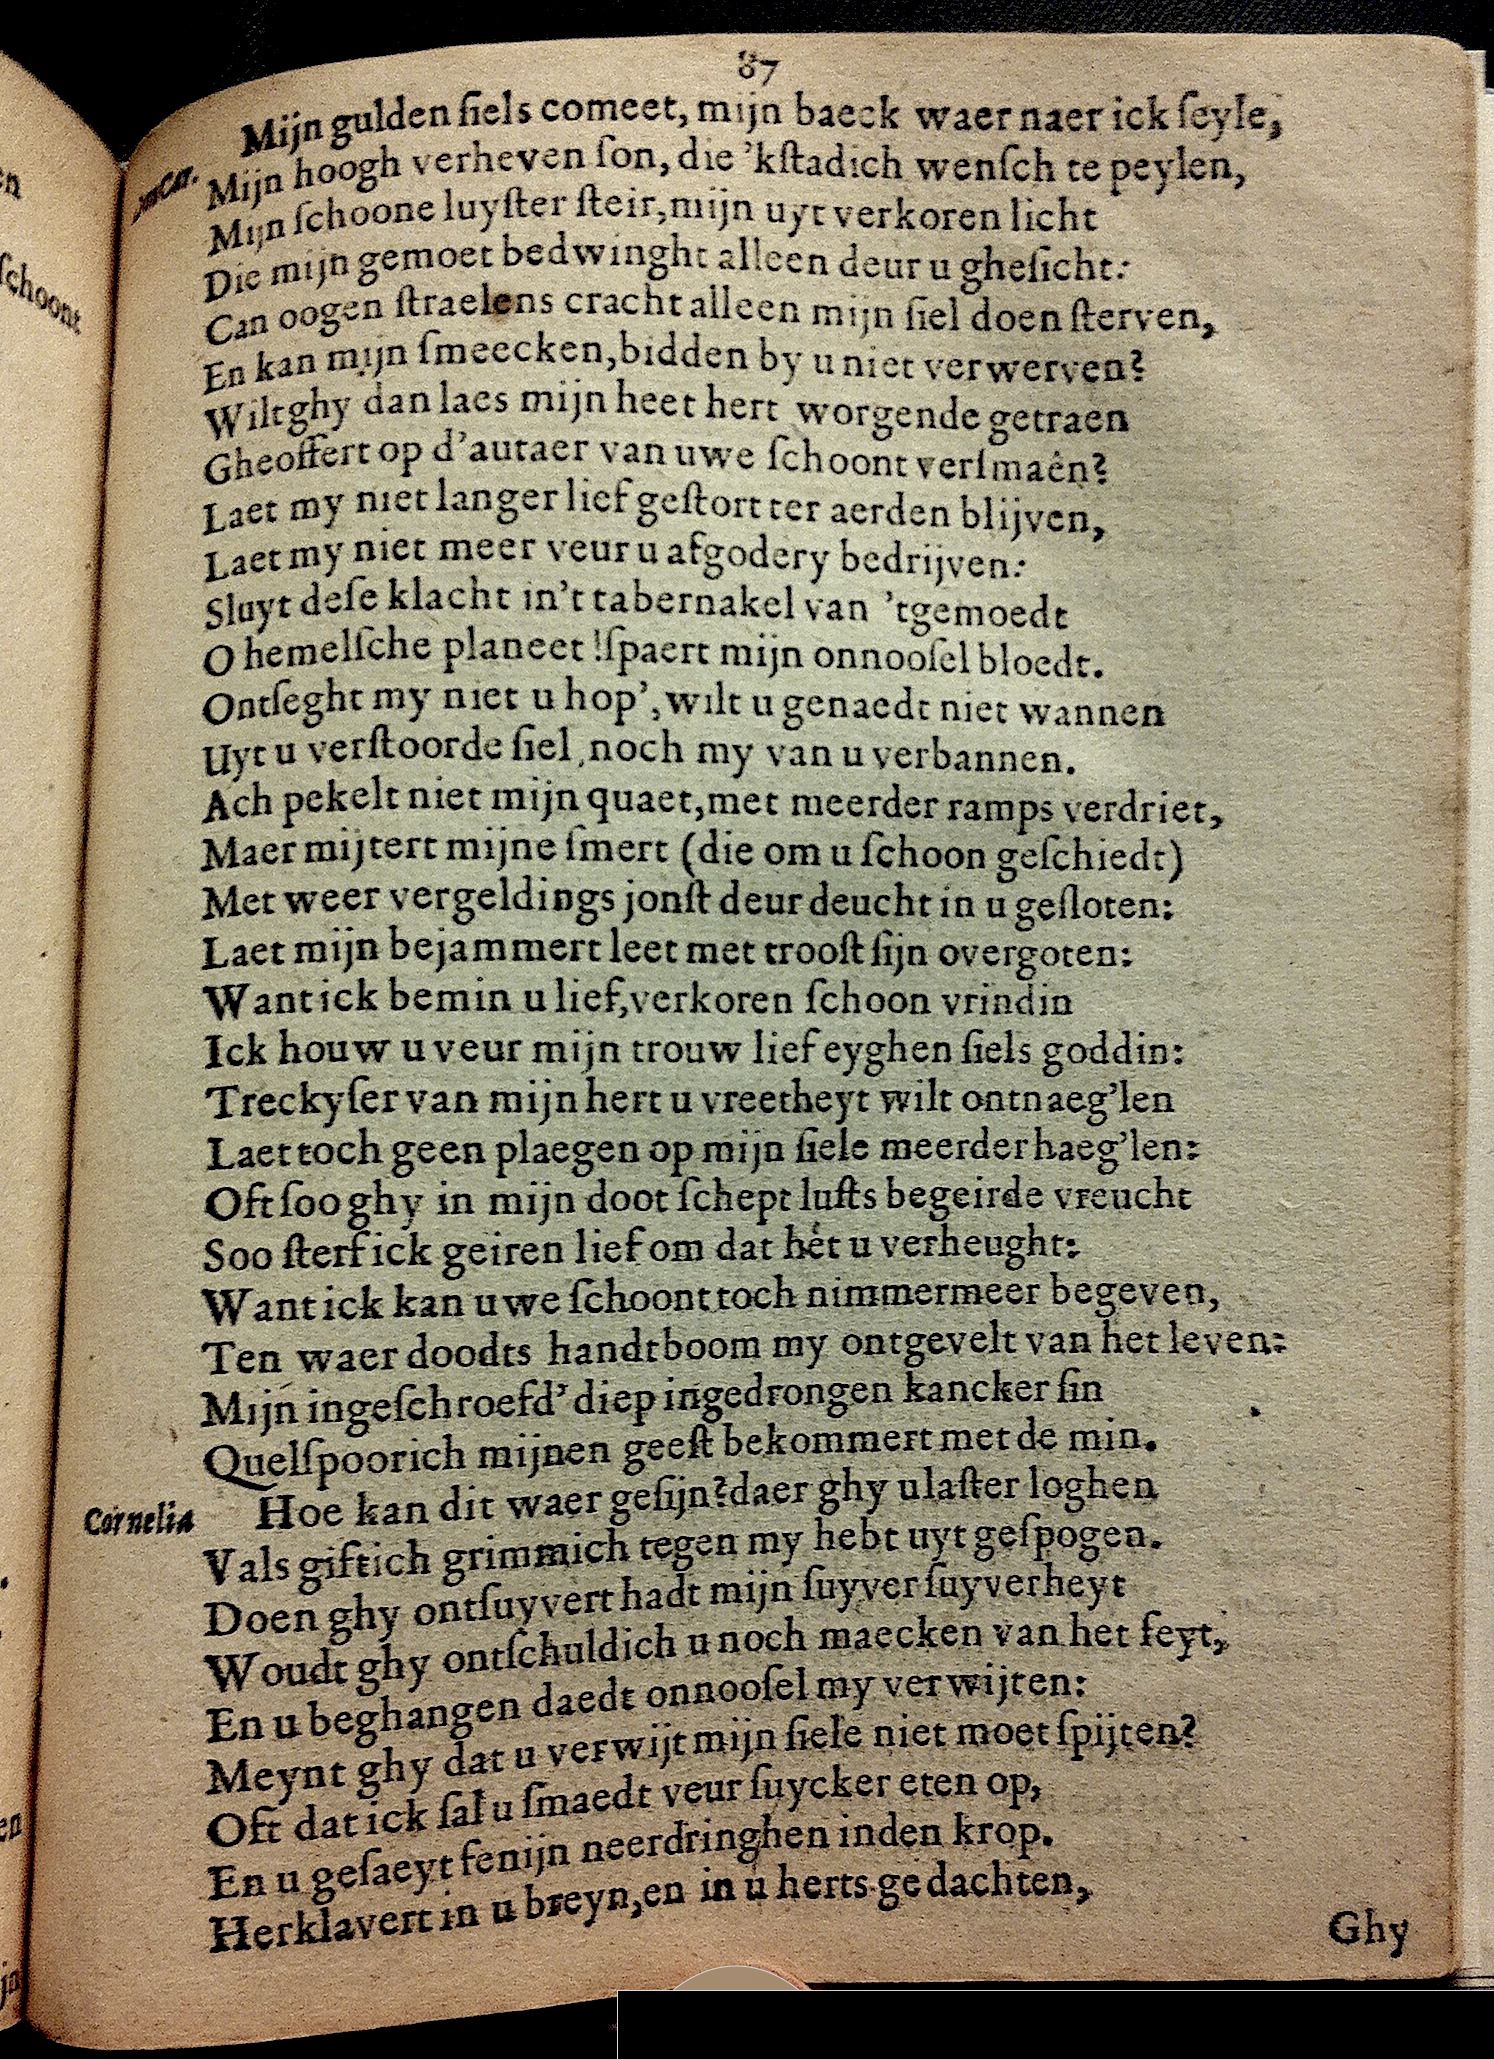 87
Mijn gulden ſiels comeet, mijn baeck waer naer ick ſeyle,
Mijn hoogh verheven ſon, die 'kſtadich wenſch te peylen,
Mijn ſchoone luyſter ſteir, mijn uyt verkoren licht
Die mijn gemoet bedwinght alleen deur u gheſicht:
Can oogen ſtraelens cracht alleen mijn ſiel doen ſterven,
En kan mijn ſmeecken, bidden by u niet verwerven?
Wilt ghy dan laes mijn heet hert worgende getraen
Gheoffert op d'autaer van uwe ſchoont verſmaên?
Laet my niet langer lief geſtort ter aerden blijven,
Laet my niet meer veur u afgodery bedrijven:
Sluyt deſe klacht in't tabernakel van 'tgemoedt
O hemelſche planeet !ſpaert mijn onnooſel bloedt.
Ontſeght my niet u hop', wilt u genaedt niet wannen
Uyt u verſtoorde ſiel, noch my van u verbannen.
Ach pekelt niet mijn quaet, met meerder ramps verdriet,
Maer mijtert mijne ſmert (die om u ſchoon geſchiedt)
Met weer vergeldings jonſt deur deucht in u geſloten:
Laet mijn bejammert leet met trooſt ſijn overgoten:
Want ick bemin u lief, verkoren ſchoon vrindin
Ick houw u veur mijn trouw lief eyghen ſiels goddin:
Treckyſer van mijn hert u vreetheyt wilt ontnaeg'len
Laet toch geen plaegen op mijn ſiele meerder haeg'len:
Oft ſoo ghy in mijn doot ſchept luſts begeirde vreucht
Soo ſterf ick geiren lief om dat hét u verheught:
Want ick kan uwe ſchoont toch nimmermeer begeven,
Ten waer doodts handtboom my ontgevelt van het leven:
Mijn ingeſchroefd' diep ingedrongen kancker ſin
Quelſpoorich mijnen geeſt bekommert met de min.
Cornelia Hoe kan dit waer geſijn? daer ghy u laſter loghen
Vals giftich grimmich tegen my hebt uyt geſpogen.
Doen ghy ontſuyvert hadt mijn ſuyver ſuyverheyt
Woudt ghy ontſchuldich u noch maecken van het feyt,
En u beghangen daedt onnooſel my verwijten:
Meynt ghy dat u verwijt mijn ſiele niet moet ſpijten?
Oft dat ick ſal u ſmaedt veur ſuycker eten op,
En u geſaeyt fenijn neerdringhen inden krop.
Herklavert in u breyn, en in u herts gedachten,
Ghy
ſchoont